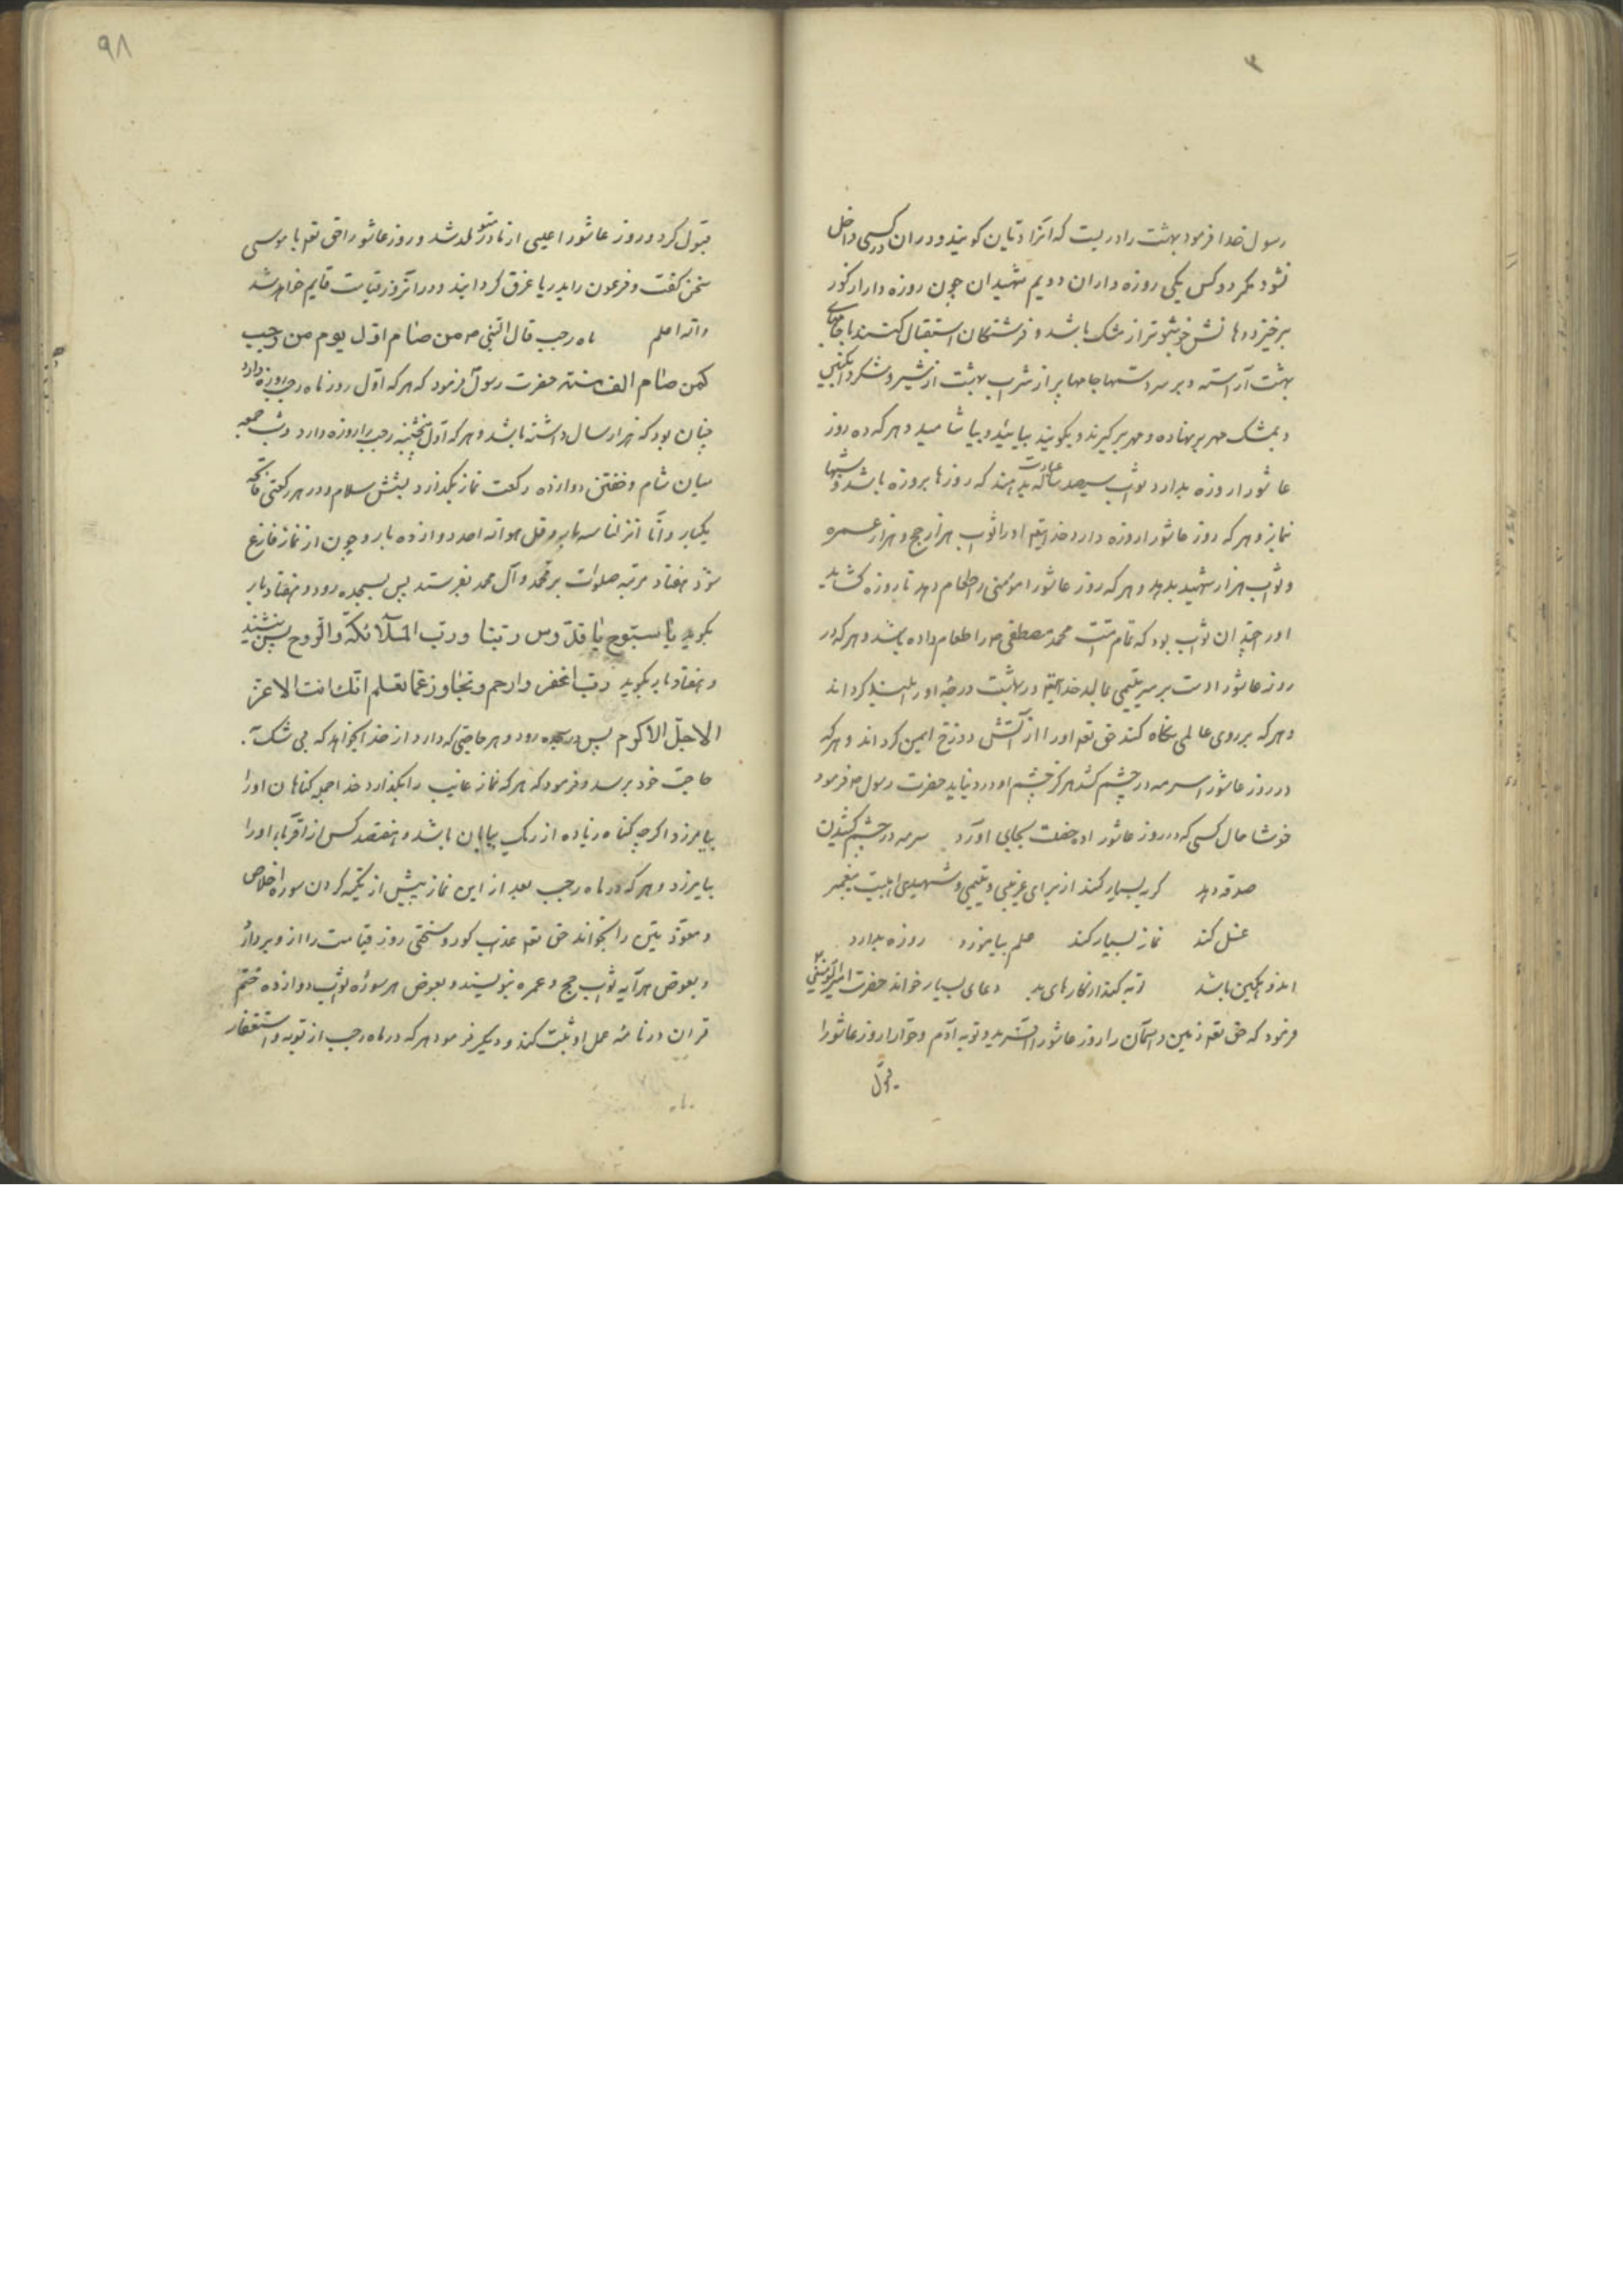 ۳
رسول خدا فرمود بهشت را دریست که آنرا دیّان کویند و دران در کسی داخل
نشود مکر دو کس یکی روزه داران دویم شهیدان چون روزه دار از کور
برخیزد دهانش خوشبوتر از مشک باشد و فرشتکان استقبال کنند با جامهای
بهشت آراسته و بر سر دستها جامها پر از شراب بهشت از شیر و شکر و انکبین
و بمشک مهر بر نهاده و مهر برکیرند و بکویند بیائید و بیاشامید و هر که ده روز
عاشورا روزه بدارد ثواب سیصد ساله عبادت بدهند که روزها بروزه باشد و شبها
نماز و هر که روز عاشورا روزه دارد خدایتعه او را ثواب هزار حج و هزار عمره
و ثواب هزار شهید بدهد و هر که روز عاشورا مؤمنی را طعام دهد تا روزه کشاید
اورا چندان ثواب بود که تمام امّت محمد مصطفی ص را طعام داده باشد و هر که در
روز عاشورا دست بر سر یتیمی بمالد خدایتعه در بهشت درجهٔ او را بلند کرداند
و هر که بر روی عالمی نکاه کند حق تعه او را از آتش دوزخ ایمن کرداند و هر که
در روز عاشورا سرمه در چشم کشد هرکز چشم او درد نیاید حضرت رسول ص فرمود
خوشا حال کسی که در روز عاشورا ده خصلت بجای آورد سرمه در چشم کشیدن
صدقه دهد کریه بسیار کند از برای غریبی و یتیمی و شهیدی اهلبیت پیغمبر
غسل کند نماز بسیار کند علم بیاموزد روزه بدارد
اندوهکین باشد توبه کند از کارهای بد دعای بسیار خواند حضرت امیرالمؤمنین
فرمود که حق تعه زمین و آسمان را روز عاشورا آفرید و توبه آدم و حوّا را روز عاشورا
قبول
۹۸
قبول کرد و روز عاشورا عیسی از مادر متولد شد و روز عاشورا حق تعه با موسی
سخن کفت و فرعون را بدریا غرق کردانید و در آنروز قیامت قایم خواهد شد
والله اعلم ماه رجب قال النّبی ص من صام اوّل یوم من رجب
کمن صام الف سنته حضرت رسول ص فرمود که هر که اوّل روز ماه رجب روزه دارد
چنان بود که هزار سال داشته باشد و هر که اوّل پنجشنبه رجب را روزه دارد و شب جمعه
میان شام و خفتن دوازده رکعت نماز بکذارد بشش سلام و در هر رکعتی فاتحه
یکبار و انّا انزلنا سه بار و قل هو الله احد دوازده بار و چون از نماز فارغ
شود هفتاد مرتبه صلوات بر محمّد و آل محمد بفرستد پس بسجده رود و هفتاد بار
بکوید یا سبّوح یا قدّوس ربّنا و ربّ الملآئکة و الرّوح پس بنشیند
و هفتاد بار بکوید ربّ اغفر و ارحم و تجاوز عمّا تعلم انّک انت الاعزّ
الاجلّ الاکرم پس در سجده رود و هر حاجتی که دارد از خدا بخواهد که بی شک
حاجت خود برسد و فرمود که هر که نماز غایب را بکذارد خدا جمله کناهان او را
بیامرزد اکرچه کناه زیاده از ریک بیابان باشد و هفتصد کس از اقربای او را
بیامرزد و هر که در ماه رجب بعد از این نماز پیش از تکیه کردن سوره اخلاص
و معوّذتین را بخواند حق تعه عذاب کور و سختی روز قیامت را از و بردارد
و بعوض هر آیه ثواب حج و عمره بنویسند و بعوض هر سوره ثواب دوازده ختم
قران در نامهٔ عمل او ثبت کند و دیکر فرمود هر که در ماه رجب از توبه و استغفار